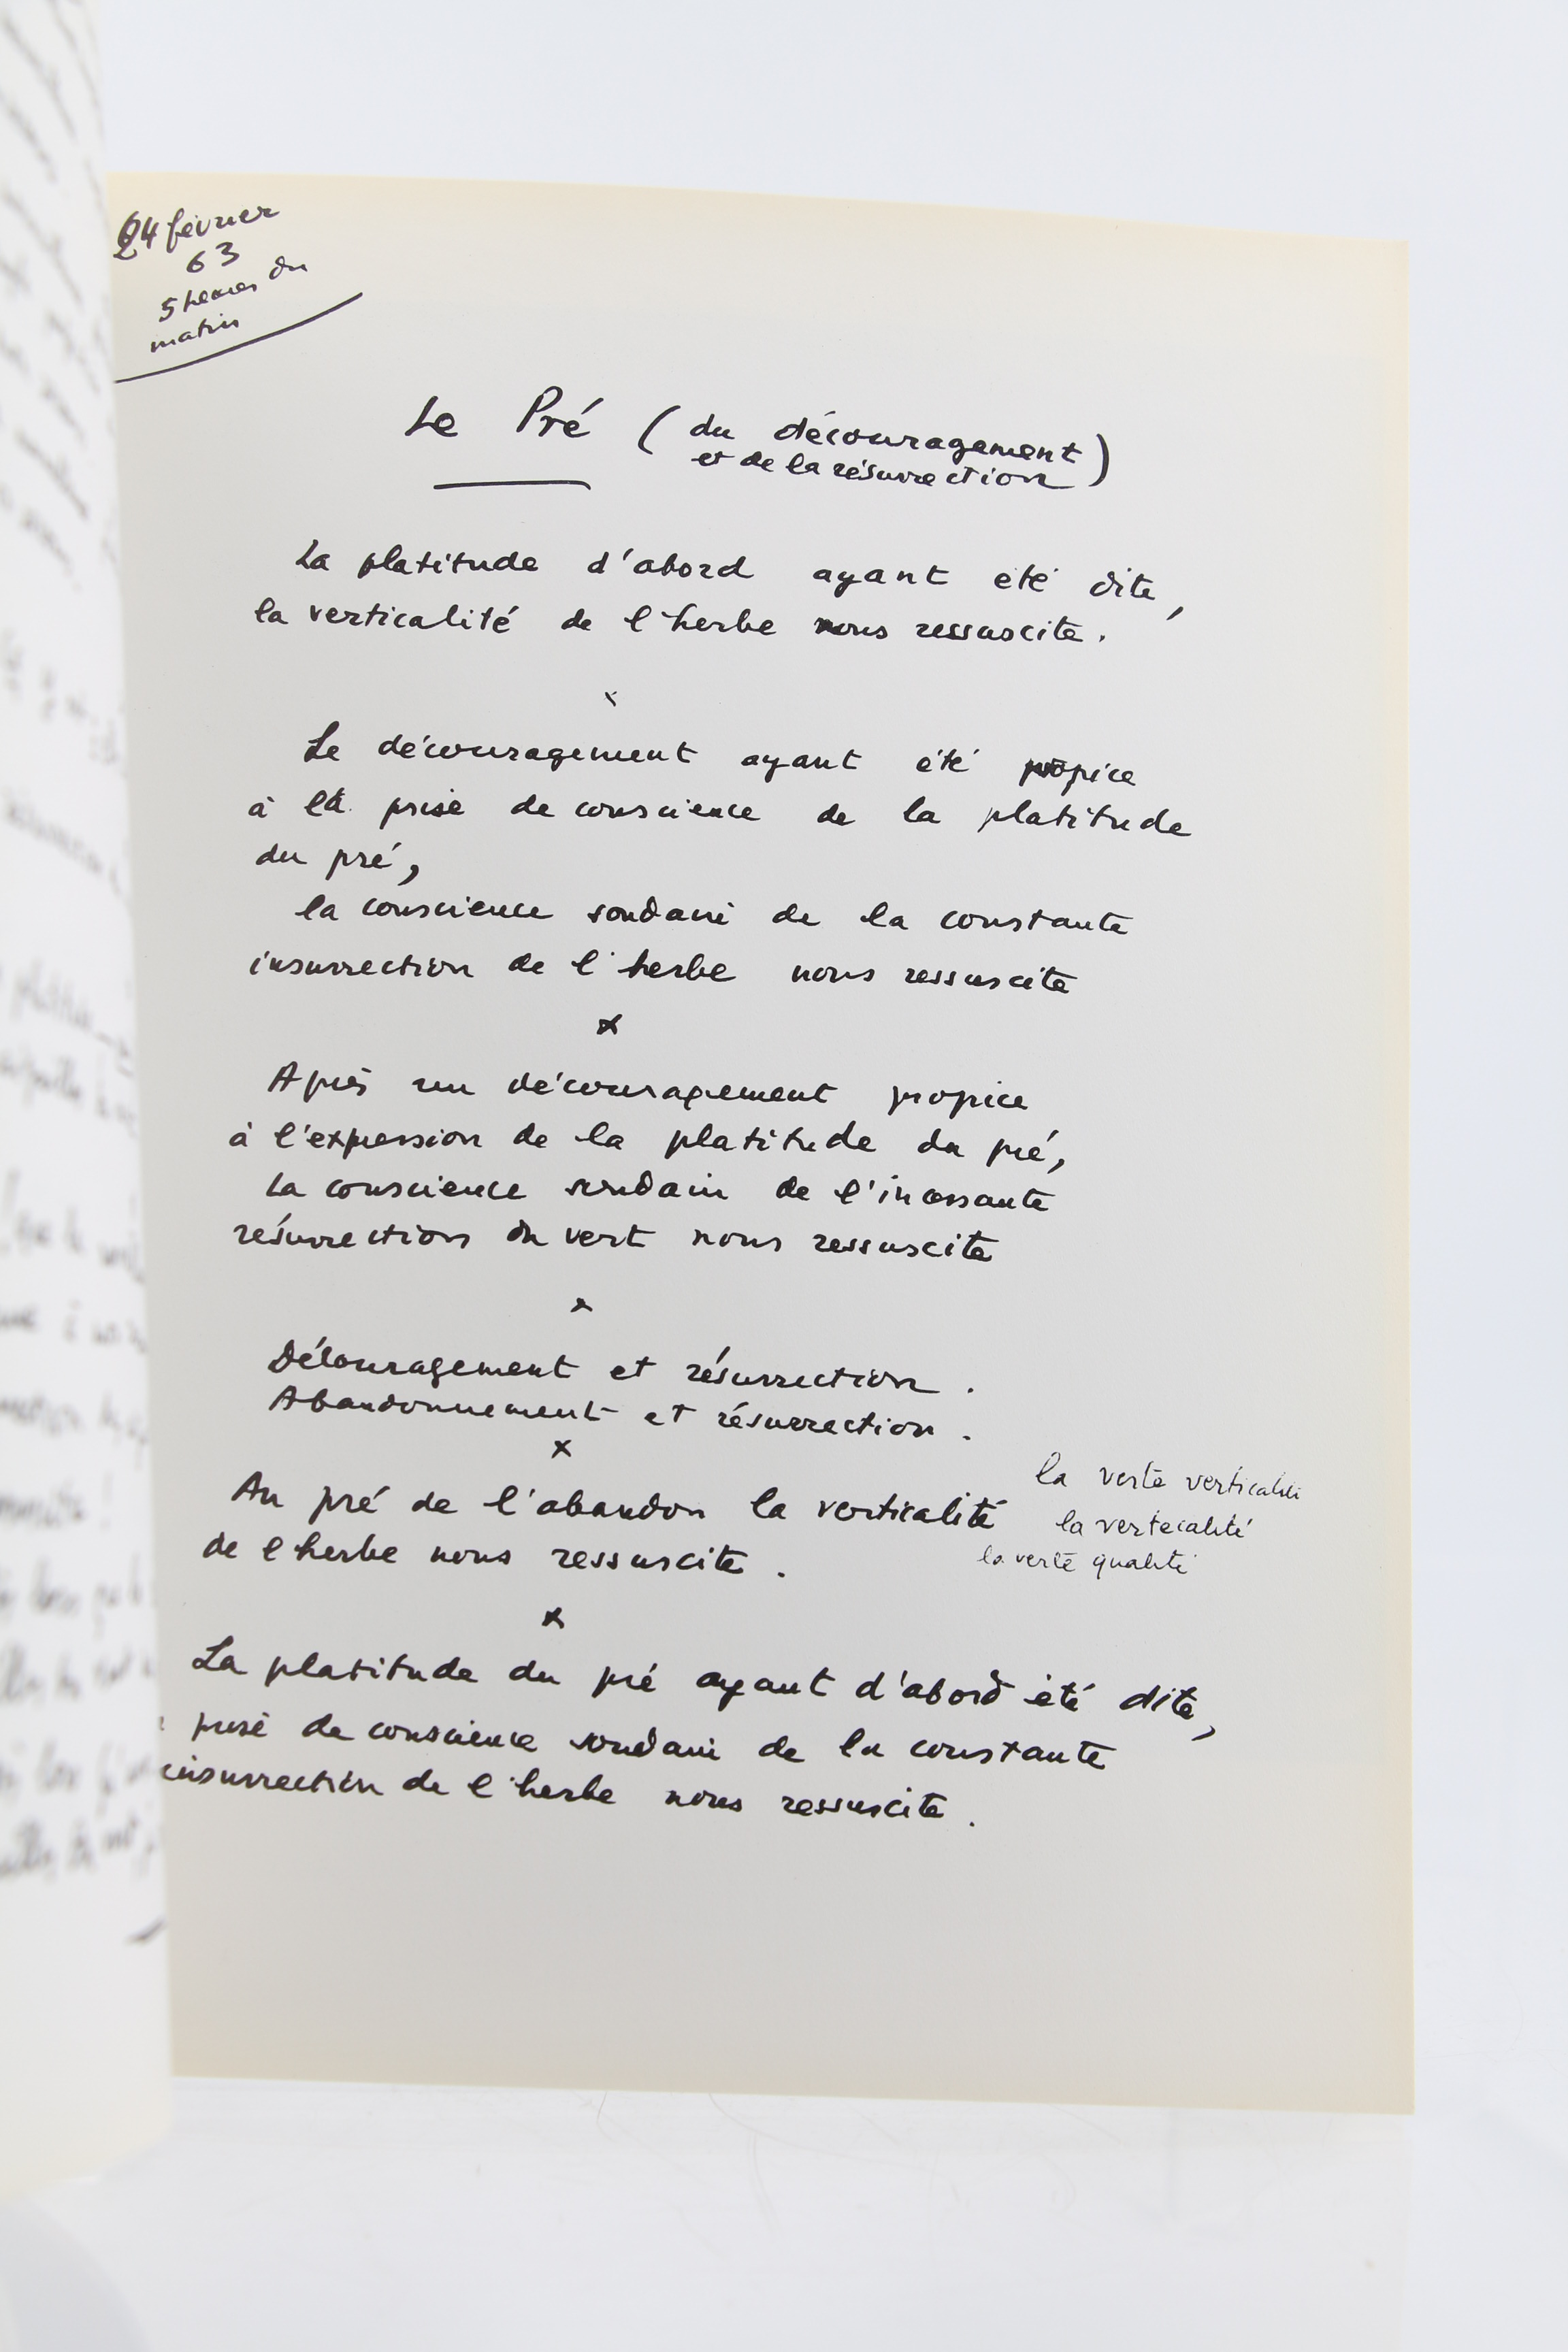 24 février
63
5 heures du
matin
Le Pré (du découragement
et de la résurrection)
La platitude d'abord ayant été dite,
la verticalité de l'herbe nous ressuscite.
x
Le découragement ayant été propice
à la prise de conscience de la platitude
du pré,
la conscience soudain de la constante
insurrection de l'herbe nous ressuscite
x
Après un découragement propice
à l'expression de la platitude du pré,
La conscience soudain de l'incessante
résurrection du vert nous ressuscite
x
Découragement et résurrection.
Abandonnement et résurrection.
x
Au pré de l'abandon la verticalité
de l'herbe nous ressuscite.
la verte verticalité
la vertecalité
la verte qualité
x
La platitude du pré ayant d'abord été dite,
prise de conscience soudain de la constante
insurrection de l'herbe nous ressuscite.